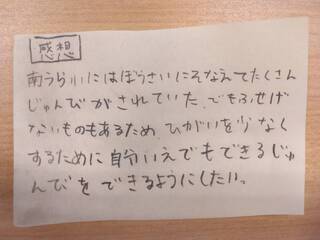 感想
南うらいにはぼうさいにそなえてたくさん
じゅんびがされていた。でもふせげ
ないものもあるため、ひがいを少なく
するために自分いえでもできるじゅ
んびをできるようにしたい。